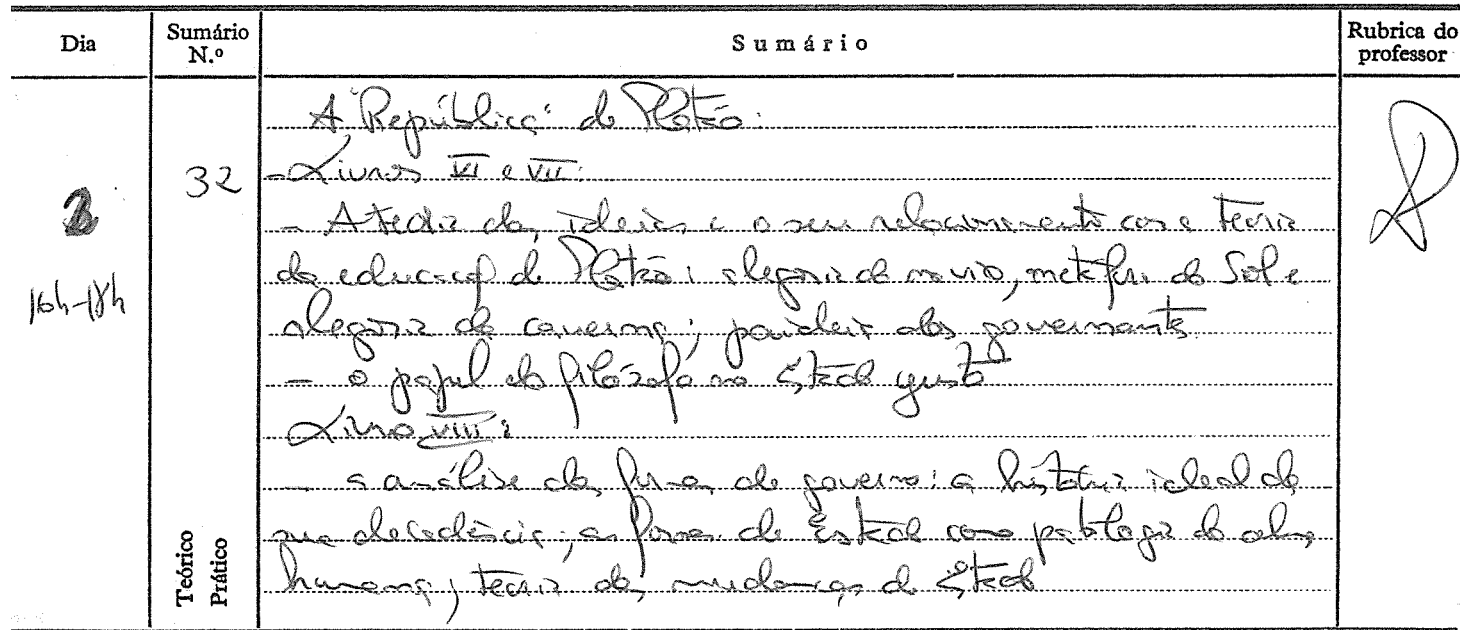 Dia
Sumário N.º
Sumário
Rubrica do professor
A "República" de Platão:
32
- Livros VI e VII:
- A teoria das ideias e o seu relacionamento com a teoria
da educação de Platão: alegoria do navio, metáfora do Sol e
16h-18h
alegoria da caverna; paideia dos governantes
- o papel do filósofo no Estado justo
Livro VIII:
- a análise das formas de governo: a história ideal da
sua decadência; as formas de Estado como patologia da alma
humana; teoria das mudanças de Estado
Teórico
Prático